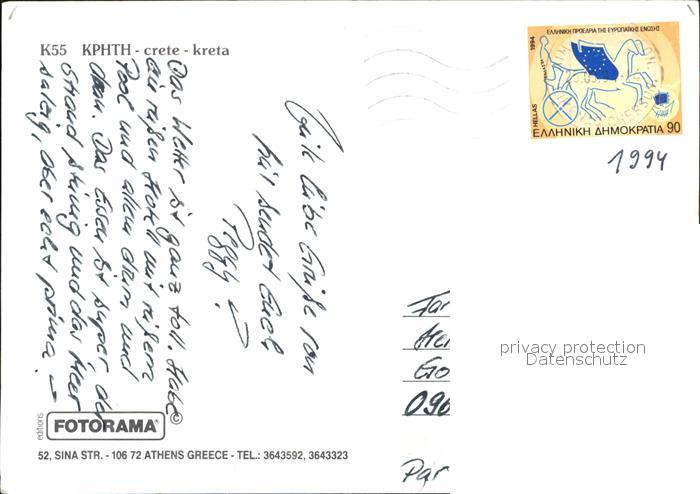 K55 ΚΡΗΤΗ - crete - kreta
Ganz liebe Grüße von
hier sendet Euch
Peggy
Das Wetter ist ganz toll. Habe
ein Hotell mit
Pool und allem drum und
dran. Das Essen ist super der
Strand steinig und das Meer
salzig, aber echt prima.
ΕΛΛΗΝΙΚΗ ΠΡΟΕΔΡΙΑ ΤΗΣ ΕΥΡΩΠΑΪΚΗΣ ΕΝΩΣΗΣ
1994
HELLAS
ΕΛΛΗΝΙΚΗ ΔΗΜΟΚΡΑΤΙΑ 90
1994
096
Par
privacy protection
Datenschutz
editions
FOTORAMA®
©
52, SINA STR. - 106 72 ATHENS GREECE - TEL.: 3643592, 3643323